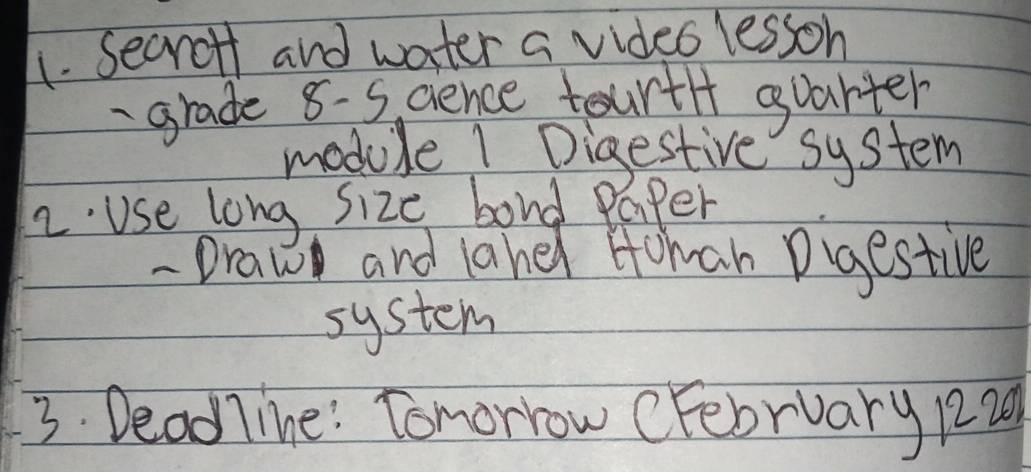 1. Searctt and water a video lesson
- grade 8-Science tourtH quarter
module 1 Digestive system
2. Use long size bond paper
- Draw and label Human Digestive
system
3. Deadline: Tomorrow (February 12 20